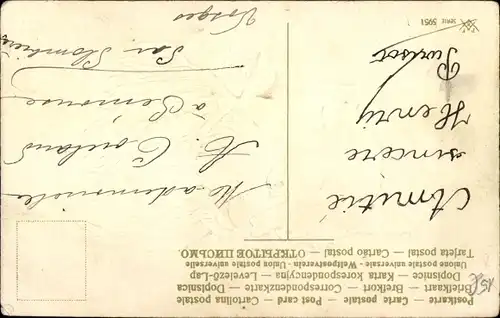 Postkarte — Carte postale — Post card — Cartolina postale
Briefkaart — Brefkort — Correspondenzkarte — Dopisnica
Dopisnice — Karta korespondencyjna — Levelező-Lap
Union postale universelle - Weltpostverein - Unione postale universale
Tarjeta postal — Cartão postal — ОТКРЫТОЕ ПИСЬМО
Amitié
sincère
Henry
Parisot
Mademoiselle
à Semouse
par Plombières
Vosges
SERIE 5951